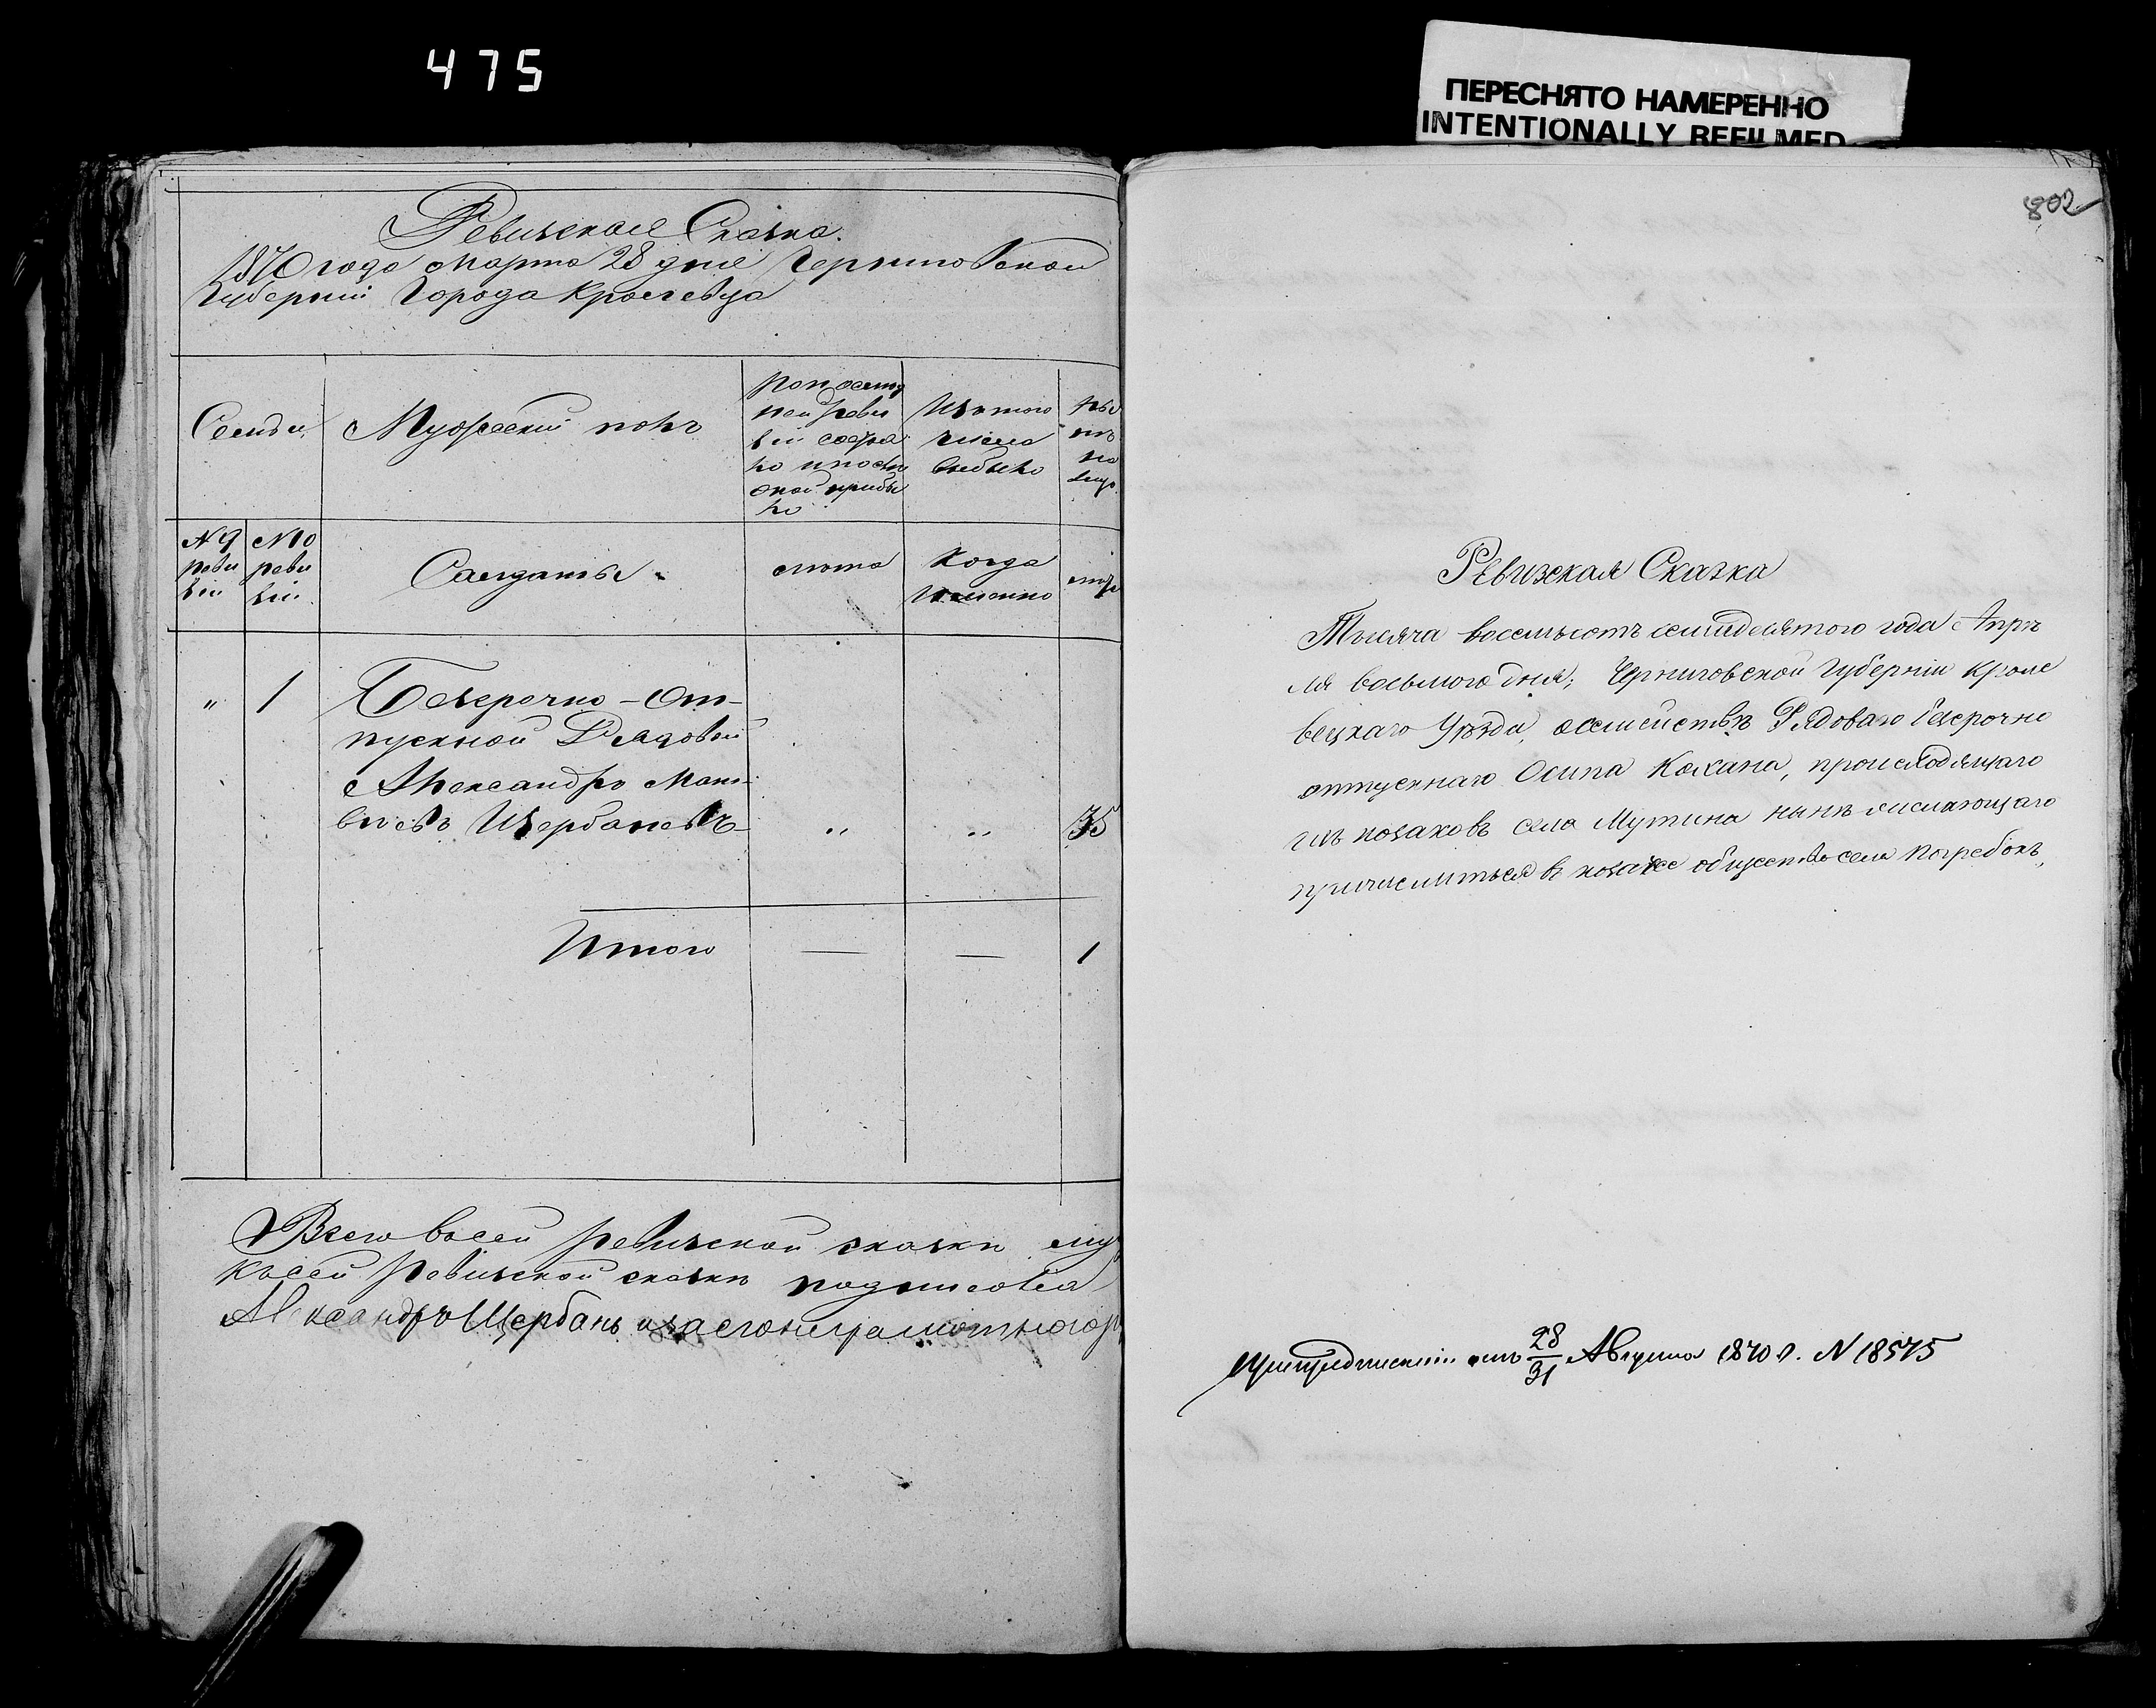 475
ПЕРЕСНЯТО НАМЕРЕННО
INTENTIONALLY REFILMED
Ревизская Сказка.
1870 года Марта 28 дня Черниговской
Губерніи Города Кролевца
Семьи
Мужескій полъ
По послед
ней реви
зіи состоя
ло и после
оной прибы
ло
Изъ того
числа
выбыло
№ 9
реви
зіи
№ 10
реви
зіи
Салдаты
лета
Когда
именно
"
1
Безсрочно-От-
пускной Рядовой
Александръ Мат-
веевъ Щербаневъ
"
"
35
Итого
—
—
1
Всего в сей ревизской сказки
К сей ревизской сказки подписовся
Александръ Щербань
802
Ревизская Сказка
Тысяча восемьсотъ семидесятого года Апре
ля восьмого дня; Черниговской Губерніи Кроле
вецкаго Уѣзда, о семействѣ Рядоваго безсрочно
отпускнаго Осипа Кохана, происходящаго
изъ козаковъ села Мутина нынѣ желающаго
причислиться в козачее общество села Погребокъ,
При предписаніи отъ 28/31 Августа 1870 г. N 18575